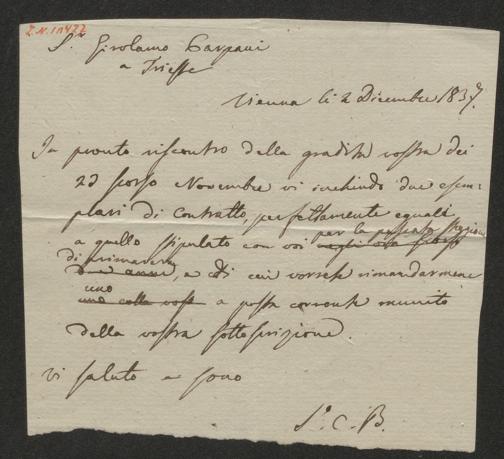 I.N. 11427
Sr. Girolamo Carpani
a Trieste
Vienna li 2 Dicembre 1837.
In pronto riscontro della gradita vostra dei
23 scorso Novembre vi inchiudo due esem-
plari di Contratto, perfettamente eguali
a quello stipulato con voi per la passata stagione
di primavera, e di cui vorrete rimandarmene
uno
a posta corrente munito
della vostra sottoscrizione
vi saluto e sono
C. B.